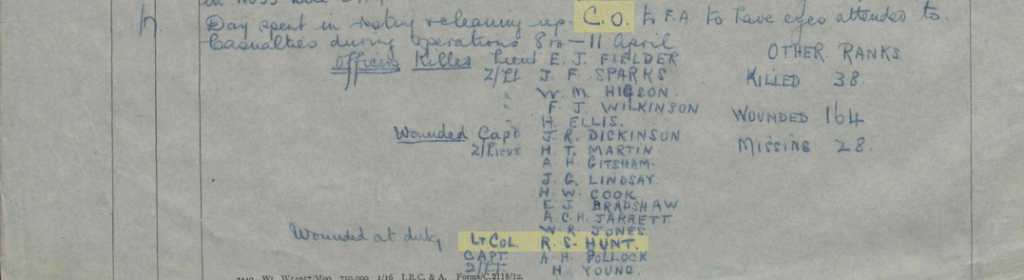 Day spent in resting & cleaning up. C.O. to F.A. to have eyes attended to.
Casualties during operations 8th - 11 April
Officers Killed Lieut E. J. FIELDER
2/Lt J. F. SPARKS
" W. M. HIGSON
" F. J. WILKINSON
" H. ELLIS.
Wounded Capt J. R. DICKINSON
2/Lieut H. T. MARTIN
A. H. GITSHAM.
J. G. LINDSAY.
H. W. COOK
E. J. BRADSHAW
A. C. H. JARRETT
W. R. JONES.
Wounded at duty Lt Col. R. S. HUNT.
CAPT. A. H. POLLOCK
2/LT H. YOUNG.
OTHER RANKS
KILLED 38
WOUNDED 164
MISSING 28.
J.B.C. & A. Forms/C.2118/12.